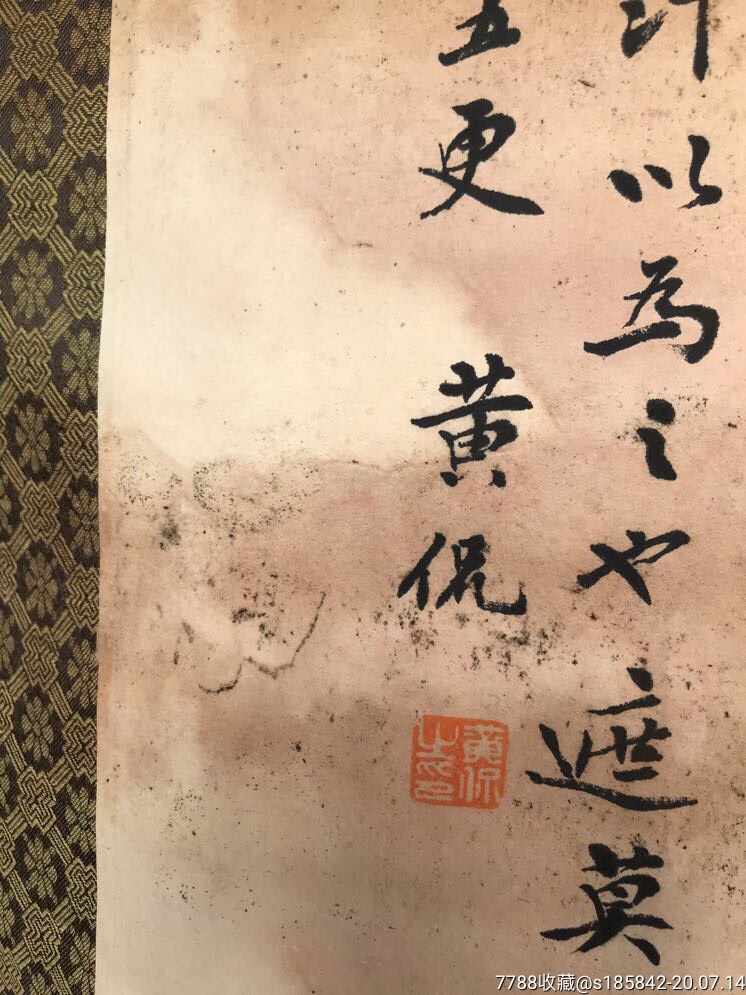 以為之也遮莫
五更 黄侃
黄侃之印
7788收藏@s185842-20.07.14